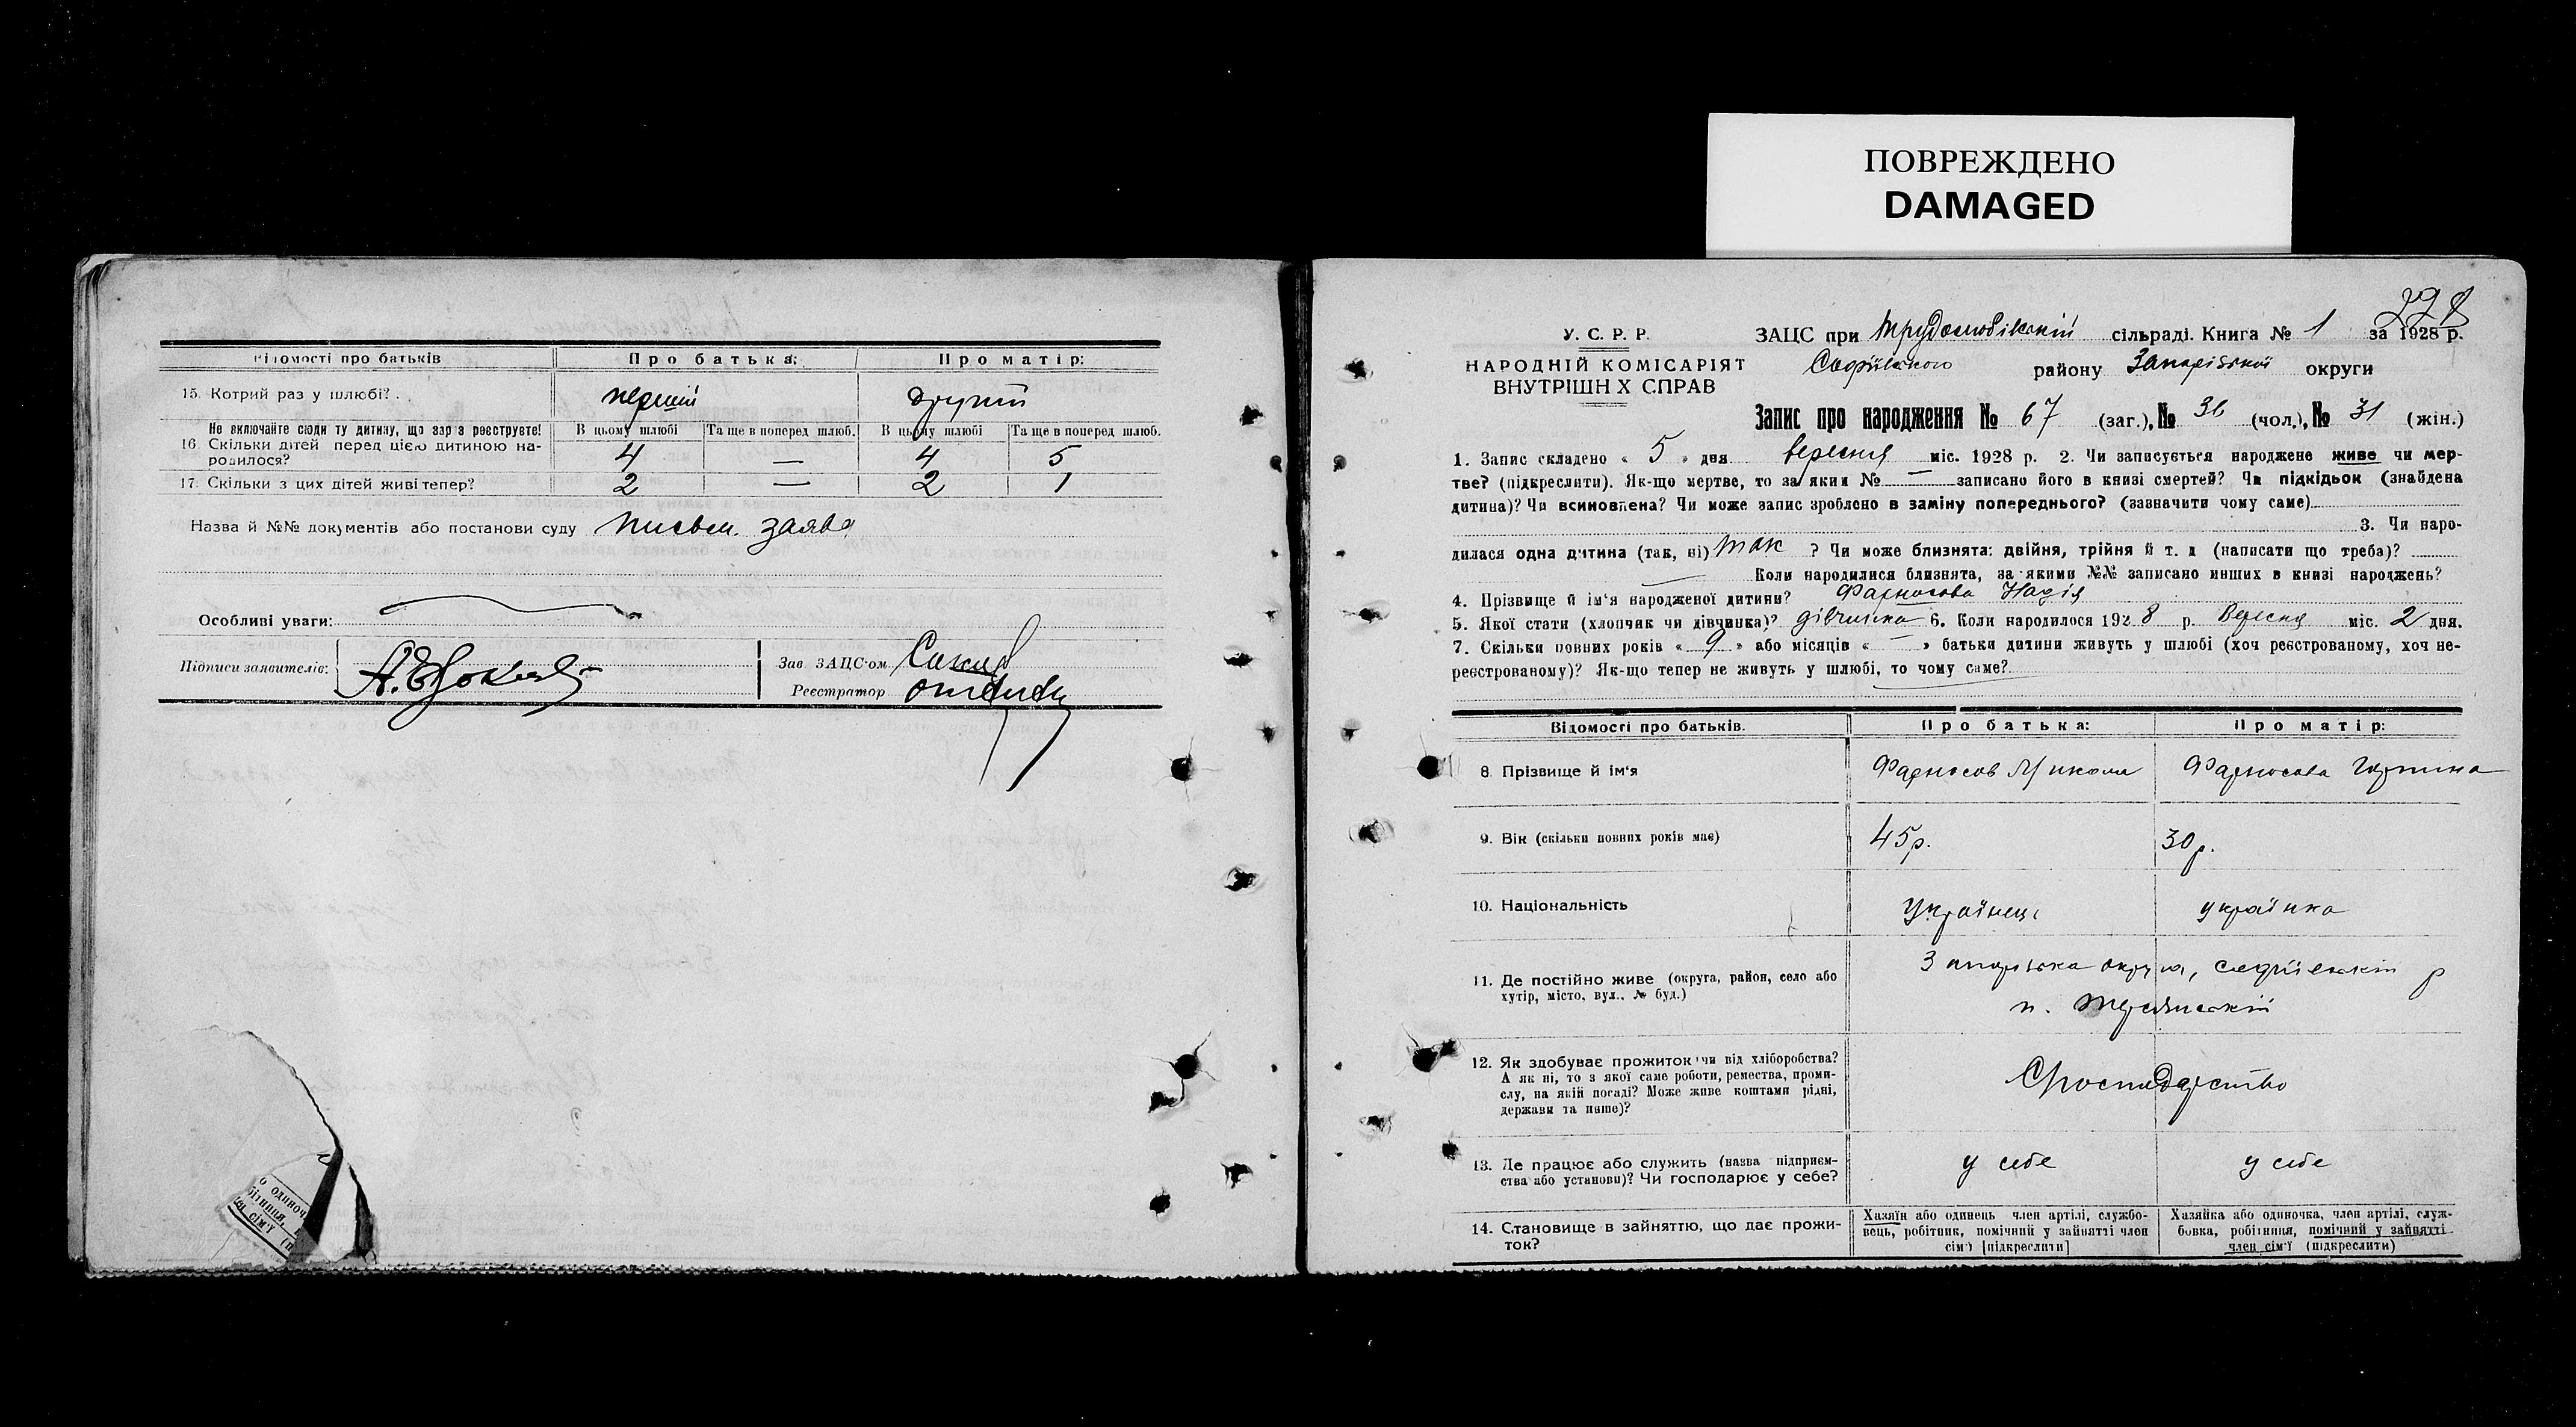 ПОВРЕЖДЕНО
DAMAGED
Відомості про батьків
Про батька:
Про матір:
15. Котрий раз у шлюбі?
перший
другий
Не включайте сюди ту дитину, що зараз реєструєте!
В цьому шлюбі
Та ще в поперед шлюб.
В цьому шлюбі
Та ще в поперед шлюб.
16. Скільки дітей перед цією дитиною на-
родилося?
4 — 4 5
17. Скільки з цих дітей живі тепер?
2 — 2 1
Назва й №№ документів або постанови суду письм. заява
Особливі уваги:
Підписи заявителів:
Зав ЗАЦС-ом
Реєстратор
о одиноч
бітниця,
сім'ї (п
228
У. С. Р. Р.
НАРОДНІЙ КОМІСАРІЯТ
ВНУТРІШН Х СПРАВ
ЗАЦС при Трудолюбівській сільраді. Книга № 1 за 1928 р.
Софіївського району Запорізької округи
Запис про народження № 67 (заг.), № 36 (чол.), № 31 (жін.)
1. Запис складено « 5 » дня вересня міс. 1928 р. 2. Чи записується народжене живе чи мер-
тве? (підкреслити). Як-що мертве, то за яким № — записано його в книзі смертей? Чи підкідьок (знайдена
дитина)? Чи всиновлена? Чи може запис зроблено в заміну попереднього? (зазначити чому саме)
3. Чи наро-
дилася одна дитина (так, ні) так ? Чи може близнята: двійня, трійня й т. д (написати що треба)?
Коли народилися близнята, за якими №№ записано инших в книзі народжень?
4. Прізвище й ім'я народженої дитини? Фарносова Надія
5. Якої стати (хлопчак чи дівчинка)? дівчинка 6. Коли народилося 1928 р. Вересня міс. 2 дня.
7. Скільки повних років « 9 » або місяців « — » батьки дитини живуть у шлюбі (хоч реєстрованому, хоч не-
реєстрованому)? Як-що тепер не живуть у шлюбі, то чому саме?
Відомості про батьків.
Про батька:
Про матір:
8. Прізвище й ім'я
Фарносов Микола
Фарносова
9. Вік (скільки повних років має)
45 р.
30 р.
10. Національність
Українець
українка
11. Де постійно живе (округа, район, село або
хутір, місто, вул., № буд.)
Запорізька округа, Софіївський р
п.
12. Як здобуває прожиток чи від хліборобства?
А як ні, то з якої саме роботи, ремества, проми-
слу, на якій посаді? Може живе коштами рідні,
держави та инше)?
Господарство
13. Де працює або служить (назва підприєм-
ства або установи)? Чи господарює у себе?
у себе
у себе
14. Становище в зайняттю, що дає прожи-
ток?
Хазяїн або одинець член артілі, службо-
вець, робітник, помічний у зайнятті член
сім'ї [підкреслити]
Хазяйка або одиночка, член артілі, служ-
бовка, робітниця, помічний у зайнятті
член сім'ї (підкреслити)